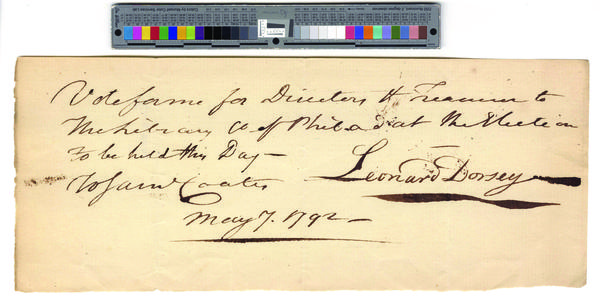 Vote for me for Directers & Treasurer to
the Library Co of Philada at the Election
to be held this Day —
To Saml Coates
Leonard Dorsey
May 7. 1792 —